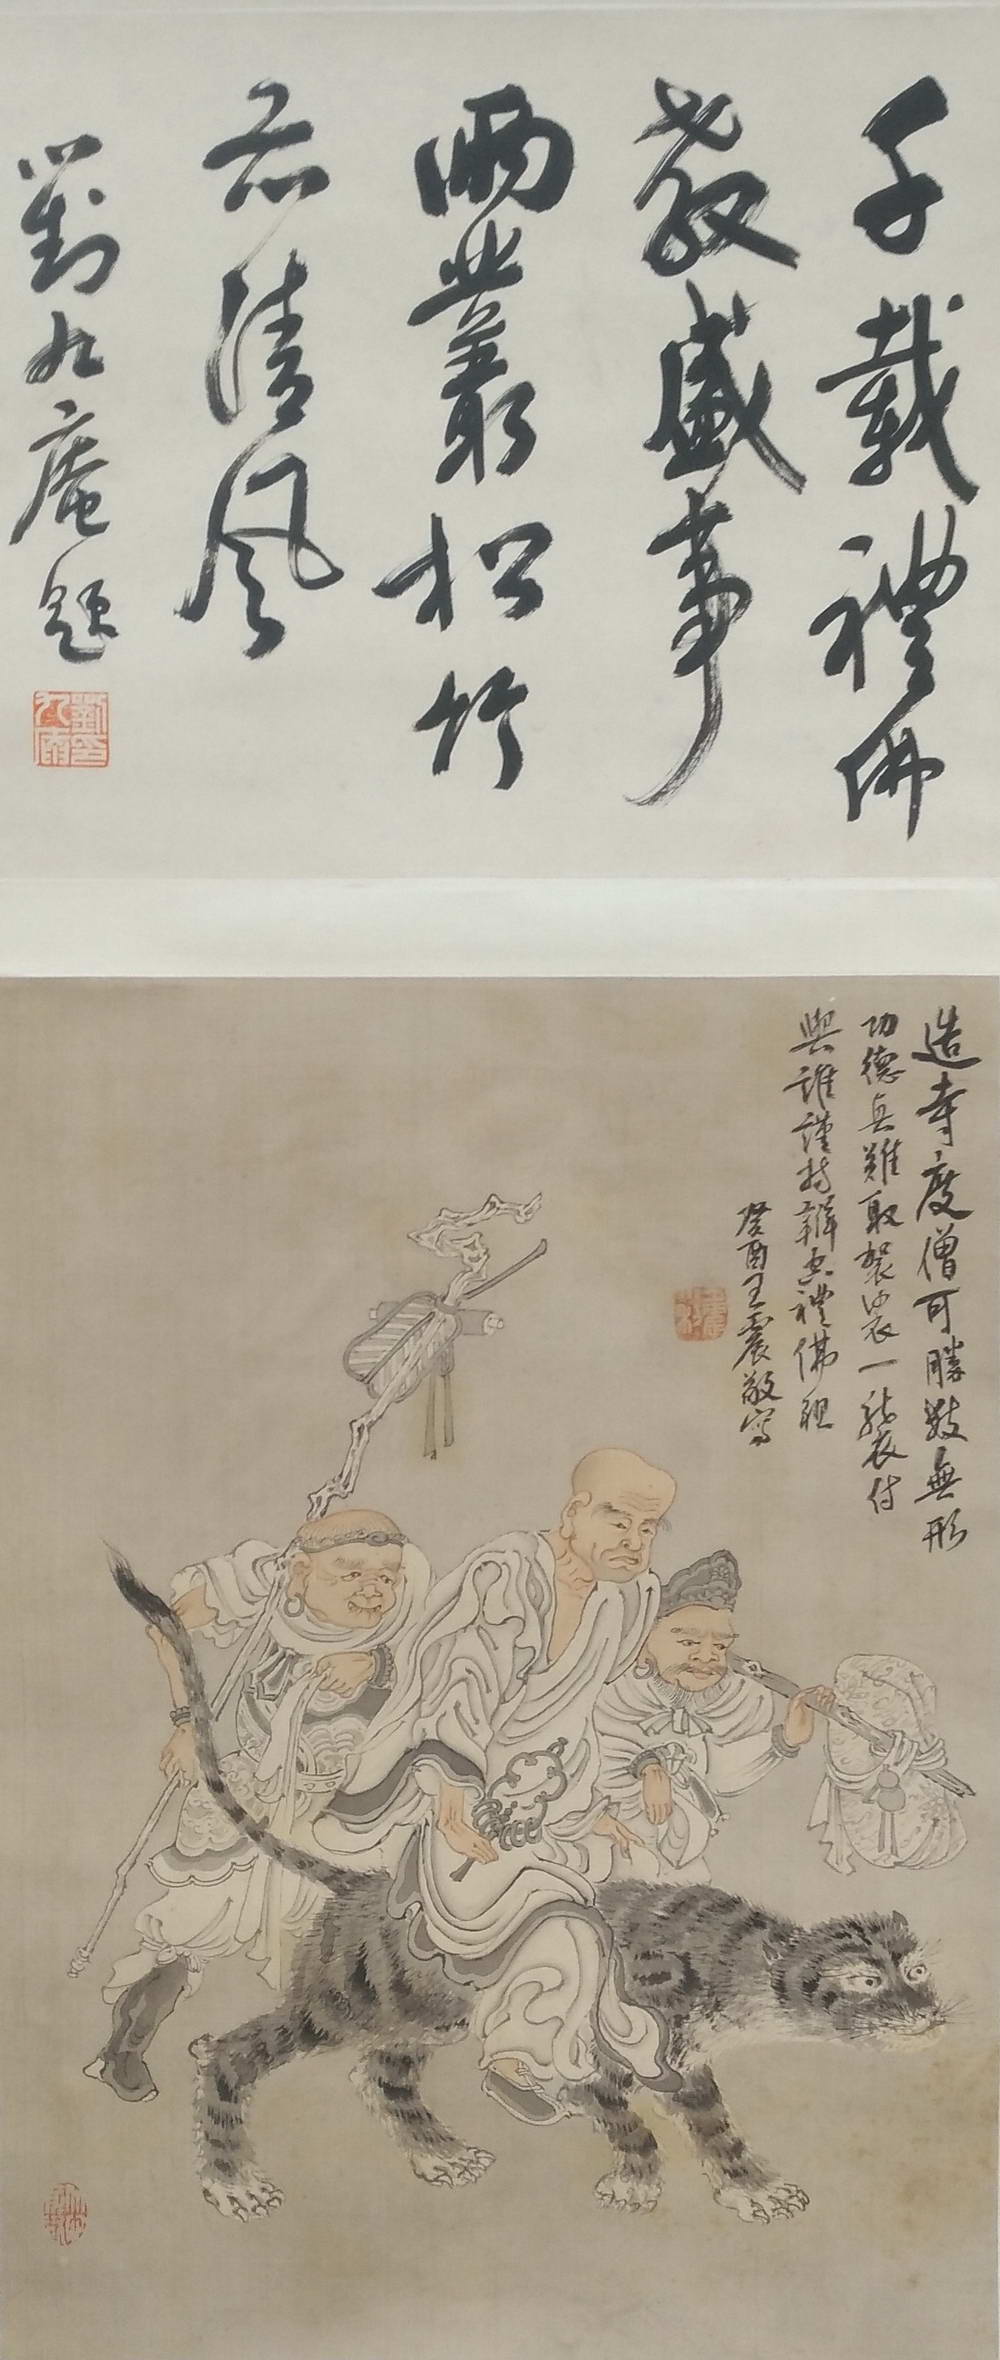 千載禮佛
教盛事
兩叢松竹
亦清風
劉九庵題
劉九庵印
造寺度僧可勝數無形
功德真難取袈裟一襲衣付
與誰謹持瓣香禮佛祖
癸酉王震敬寫